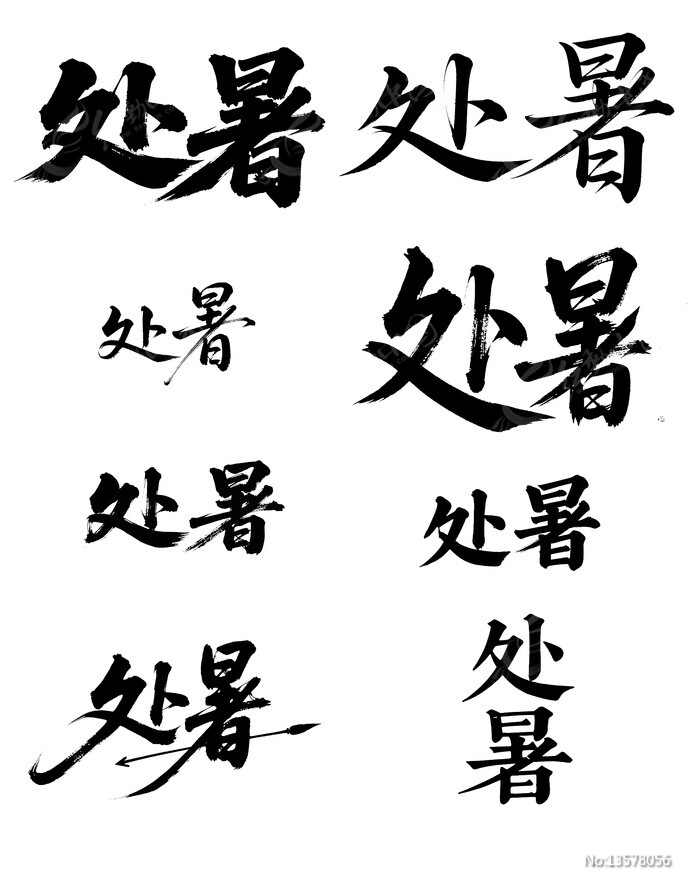 处暑 处暑
处暑 处暑
处暑 处暑
处暑 处
暑
No:13578056